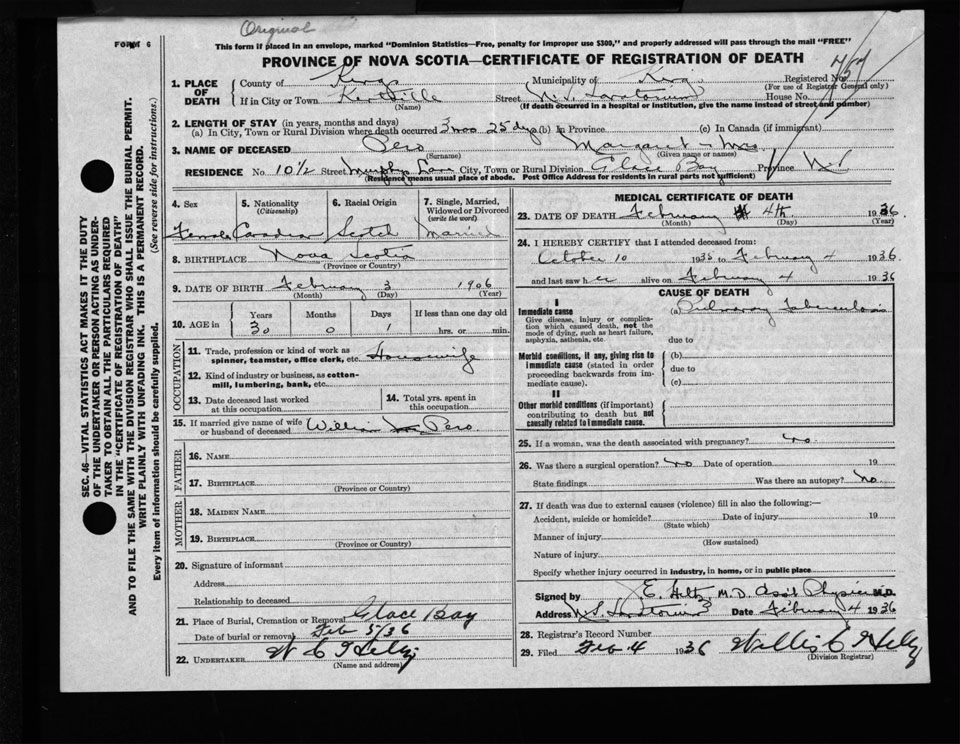 Original
FORM 6
This form if placed in an envelope, marked "Dominion Statistics—Free, penalty for improper use $300," and properly addressed will pass through the mail "FREE"
PROVINCE OF NOVA SCOTIA—CERTIFICATE OF REGISTRATION OF DEATH
757
1. PLACE OF DEATH
County of Kings Municipality of Kings Registered No.
(For use of Registrar General only)
If in City or Town Kentville Street N.S. Sanatorium House No.
(Name) (If death occurred in a hospital or institution, give the name instead of street and number)
2. LENGTH OF STAY (in years, months and days)
(a) In City, Town or Rural Division where death occurred 3 mos 25 dys (b) In Province (c) In Canada (if immigrant)
3. NAME OF DECEASED Pero Margaret - Mrs
(Surname) (Given name or names)
RESIDENCE No 10½ Street Murphy Lane City, Town or Rural Division Glace Bay Province N.S
(Residence means usual place of abode. Post Office Address for residents in rural parts not sufficient)
4. Sex 5. Nationality (Citizenship) 6. Racial Origin 7. Single, Married, Widowed or Divorced (write the word)
Female Canadian Scotch Married
8. BIRTHPLACE Nova Scotia
(Province or Country)
9. DATE OF BIRTH February 3 1906
(Month) (Day) (Year)
10. AGE in Years Months Days If less than one day old
30 0 1 hrs. or min.
OCCUPATION
11. Trade, profession or kind of work as spinner, teamster, office clerk, etc. Housewife
12. Kind of industry or business, as cotton-mill, lumbering, bank, etc.
13. Date deceased last worked at this occupation
14. Total yrs. spent in this occupation
15. If married give name of wife or husband of deceased William Pero
FATHER
16. NAME
17. BIRTHPLACE
(Province or Country)
MOTHER
18. MAIDEN NAME
19. BIRTHPLACE
(Province or Country)
20. Signature of informant
Address
Relationship to deceased
21. Place of Burial, Cremation or Removal Glace Bay
Date of burial or removal Feb 5/36
22. UNDERTAKER W C
(Name and address)
MEDICAL CERTIFICATE OF DEATH
23. DATE OF DEATH February 4th 1936
(Month) (Day) (Year)
24. I HEREBY CERTIFY that I attended deceased from:
October 10 1935 to February 4 1936
and last saw her alive on February 4 1936
CAUSE OF DEATH
I
Immediate cause
Give disease, injury or complication which caused death, not the mode of dying, such as heart failure, asphyxia, asthenia, etc
(a) Pulmonary Tuberculosis
due to
Morbid conditions, if any, giving rise to immediate cause (stated in order proceeding backwards from immediate cause).
(b)
due to
(c)
II
Other morbid conditions (if important) contributing to death but not causally related to immediate cause.
25. If a woman, was the death associated with pregnancy? no
26. Was there a surgical operation? no Date of operation 19
State findings Was there an autopsy? no.
27. If death was due to external causes (violence) fill in also the following:—
Accident, suicide or homicide? Date of injury 19
(State which)
Manner of injury
(How sustained)
Nature of injury
Specify whether injury occurred in industry, in home, or in public place
Signed by J. E. Hiltz, M.D. Asst Physician M.D.
Address N.S. Sanatorium Date February 4 1936
28. Registrar's Record Number
29. Filed Feb 4 1936 Willis C
(Division Registrar)
SEC. 46—VITAL STATISTICS ACT MAKES IT THE DUTY
OF THE UNDERTAKER OR PERSON ACTING AS UNDER-
TAKER TO OBTAIN ALL THE PARTICULARS REQUIRED
IN THE "CERTIFICATE OF REGISTRATION OF DEATH"
AND TO FILE THE SAME WITH THE DIVISION REGISTRAR WHO SHALL ISSUE THE BURIAL PERMIT.
WRITE PLAINLY WITH UNFADING INK. THIS IS A PERMANENT RECORD.
Every item of information should be carefully supplied. (See reverse side for instructions.)